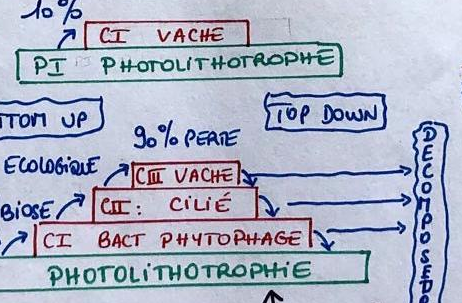 10%
CI VACHE
PI PHOTOLITHOTROPHE
TTOM UP
TOP DOWN
90% PERTE
ECOLOGIQUE
CIII VACHE
BIOSE
CII: CILIÉ
CI BACT PHYTOPHAGE
PHOTOLITHOTROPHIE
DECOMPOSE